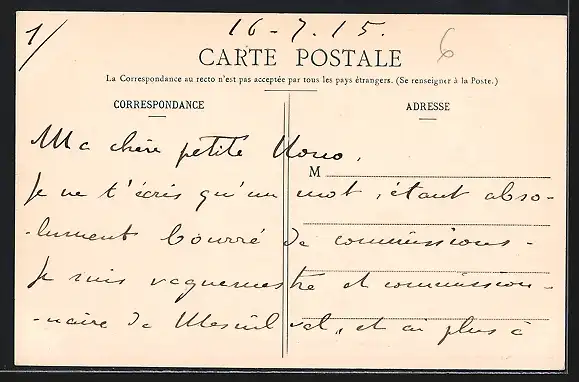 1/
16-7.15.
6
CARTE POSTALE
La Correspondance au recto n'est pas acceptée par tous les pays étrangers. (Se renseigner à la Poste.)
CORRESPONDANCE
ADRESSE
Ma chère petite Nono,
M
Je ne t'écris qu'un mot, étant abso-
-lument bourré de commissions-
Je suis vaguemestre et commission-
-naire de Mesnil val, et ai plus à